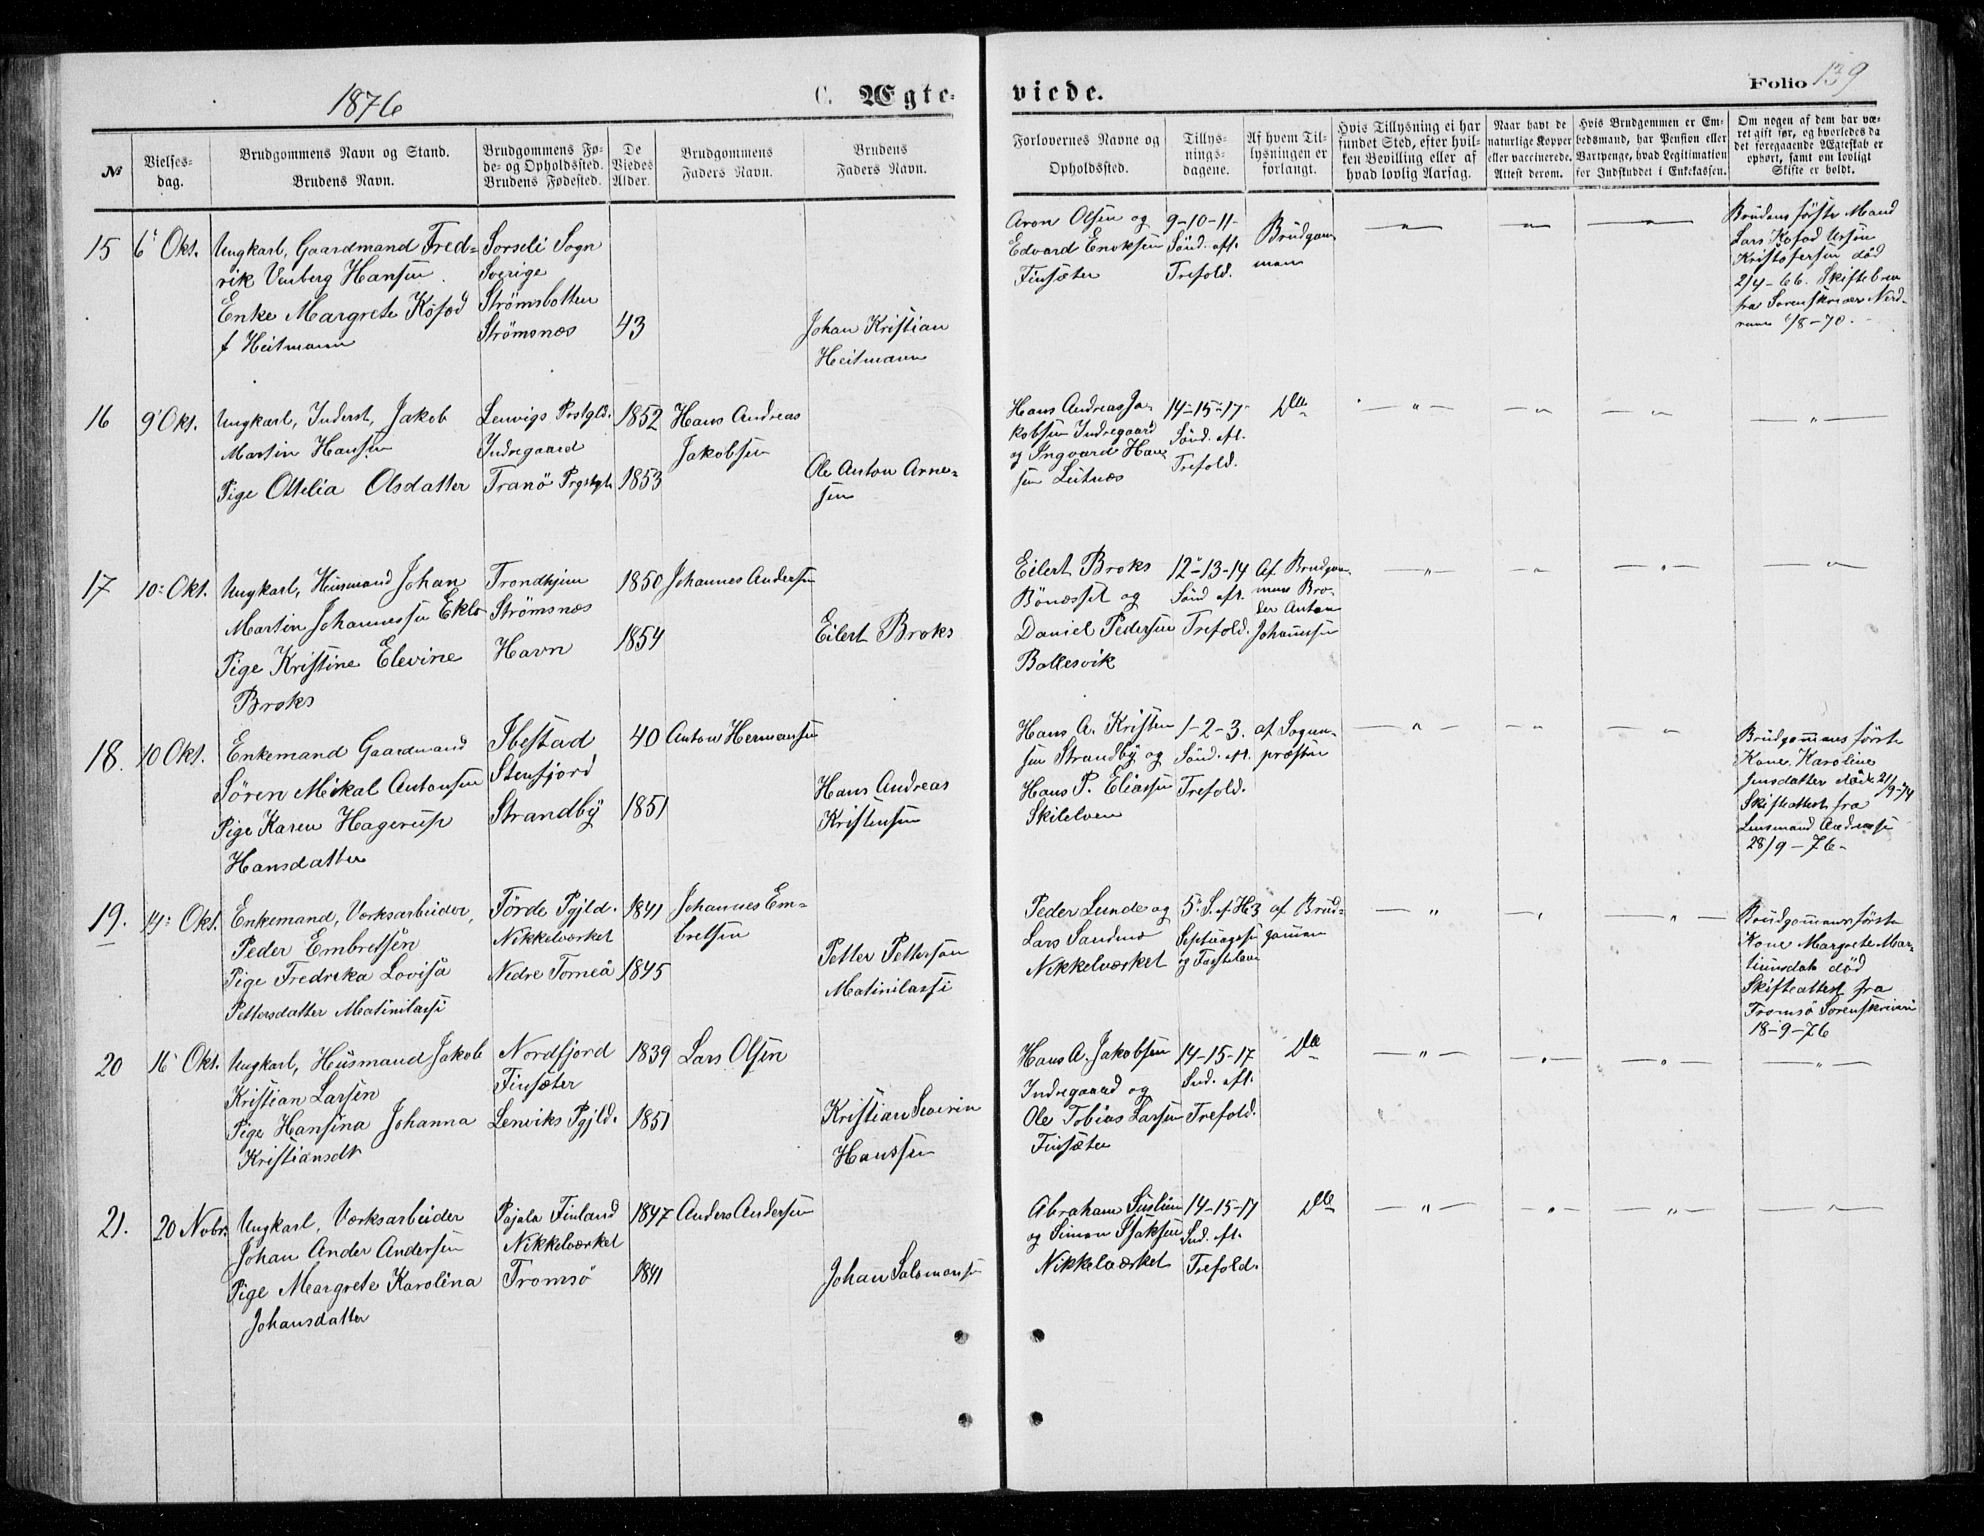 1876
C. Ægte-
viede.
Folio 139
№
Vielses-
dag.
Brudgommens Navn og Stand.
Brudens Navn.
Brudgommens Fø-
de- og Opholdssted.
Brudens Fødested.
De
Viedes
Alder.
Brudgommens
Faders Navn.
Brudens
Faders Navn.
Forlovernes Navne og
Opholdssted.
Tillys-
nings-
dagene.
Af hvem Til-
lysningen er
forlangt.
Hvis Tillysning ei har
fundet Sted, efter hvil-
ken Bevilling eller af
hvad lovlig Aarsag.
Naar havt de
naturlige Kopper
eller vaccinerede.
Attest derom.
Hvis Brudgommen er Em-
bedsmand, har Pension eller
Vartpenge, hvad Legitimation
for Indskuddet i Enkekassen.
Om nogen af dem har væ-
ret gift før, og hvorledes da
det foregaaende Ægteskab er
ophørt, samt om lovligt
Skifte er holdt.
15
6 Okt.
Ungkarl, Gaardmand Fred-
rik Vinberg Hansen
Enke Margrete Kofod
f Heitmann
Sorseli Sogn
Sverige
Strømsbotten
Strømsnæs
43
Johan Kristian
Heitmann
Aron Olsen og
Edvard Enoksen
Finsæter
9-10-11-
Sönd. eft.
Trefold.
Brudgom
men
Brudens første Mand
Lars Kofod Ursin
Kristofersen død
2/4-66. Skiftebrev
fra Sorenskriver Nord-
1/8-70.
16
9 Okt.
Ungkarl, Inderst, Jakob
Martin Hansen
Pige Ottelia Olsdatter
Lenvigs Prstgld.
Indregaard
Tranö Prgstgld
1852
1853
Hans Andreas
Jakobsen
Ole Anton Arne-
sen
Hans Andreas Ja-
kobsen Indregaard
og Ingvard Han
sen Leitnæs
14-15-17-
Sönd. eft.
Trefold.
Do
17
10 Okt.
Ungkarl, Husmand Johan
Martin Johannessen Eklo
Pige Kristine Elevine
Broks
Trondhjem
Strømsnæs
Havn
1850
1854
Johannes Andersen
Eilert Broks
Eilert Broks
Bönæsset og
Daniel Pedersen
Ballesvik
12-13-14
Sönd eft.
Trefold.
Af Brudgom
mens Bro-
der Anton
Johannesen
18.
10 Okt.
Enkemand Gaardmand
Sören Mikal Antonsen
Pige Karen Hagerup
Hansdatter
Ibestad
Stenfjord
Strandby
40
1851
Anton Hermansen
Hans Andreas
Kristensen
Hans A. Kristen
sen Strandby og
Hans P. Eliassen
Skilelven
1-2-3.
Sönd. eft.
Trefold.
af Sogne-
præsten
Brudgommens første
Kone Karoline
Jensdatter död 21/9-74
Skifteattest fra
Lensmand Andreassen
28/9-76-
19.
14 Okt.
Enkemand, Verksarbeider,
Peder Embretsen
Pige Fredrika Lovisa
Pettersdatter Matinilassi
Förde Pgjld.
Nikkelværket
Nedre Torneå
1841
1845
Johannes Em-
bretsen
Petter Pettersson
Matinilassi
Peder Lunde og
Lars Sandmo
Nikkelværket
5 S. ef. H3
Septuages
og Fastelavn
af Brud-
gommen
Brudgommens første
Kone Margrete Mar-
tinusdat. død
Skifteattest fra
Tromsö Sorenskriveri
18-9-76
20
16 Okt.
Ungkarl, Husmand Jakob
Kristian Larsen
Pige Hansina Johanna
Kristiansdt
Nordfjord
Finsæter
Lenviks Pgjld.
1839
1851
Lars Olsen
Kristian Severin
Hanssen
Hans A. Jakobsen
Indregaard og
Ole Tobias Larsen
Finsæter
14-15-17
Snd. eft.
Trefold.
Do
21.
20 Nobr.
Ungkarl, Værksarbeider
Johan Ander Andersen
Pige Margrete Karolina
Johansdatter
Pajala Finland
Nikkelværket
Tromsö
1847
1841
Anders Andersen
Johan Salomonsen
Abraham
og Simon Isaksen
Nikkelværket
14-15-17
Snd. eft.
Trefold.
Do